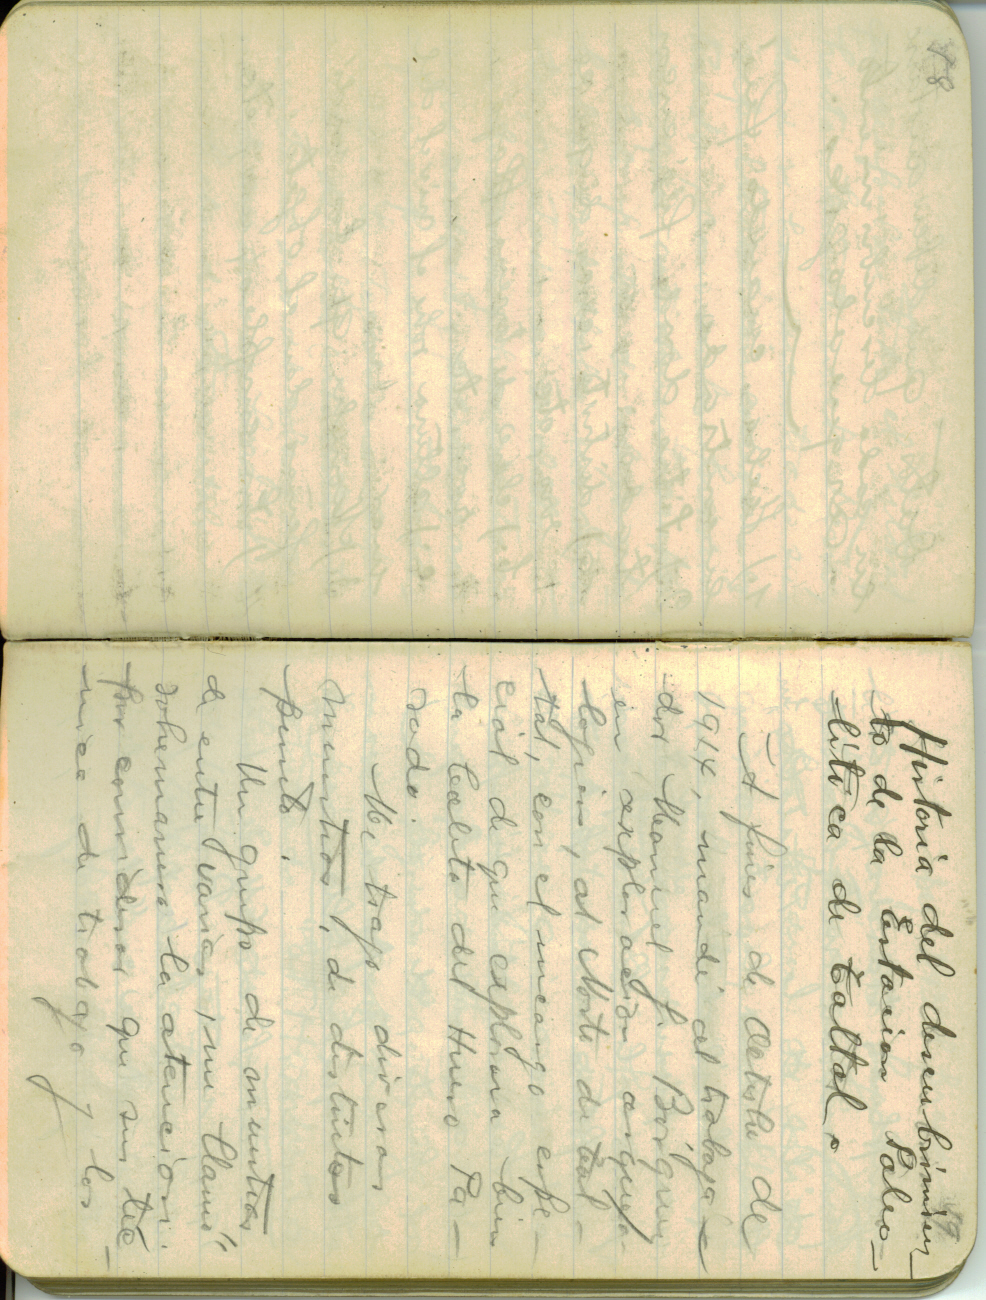 48
49
Historia del descubrimien-
to de la Estacion Paleo-
lítica de Taltal.
A fines de Octubre de
1914, mandé al trabaja-
dor Manuel J. Bórquez
en exploración arqueo-
lógica, al Norte de Tal-
tal, con el encargo espe-
cial de que explorara bien
la Caleta del Hueso Pa-
rado.
Me trajo diversas
muestras, de distintos
puntos.
Un grupo de muestras
de entre varias, me llamó
sobremanera la atencion
por considerar que sus téc-
nica de trabajo y los